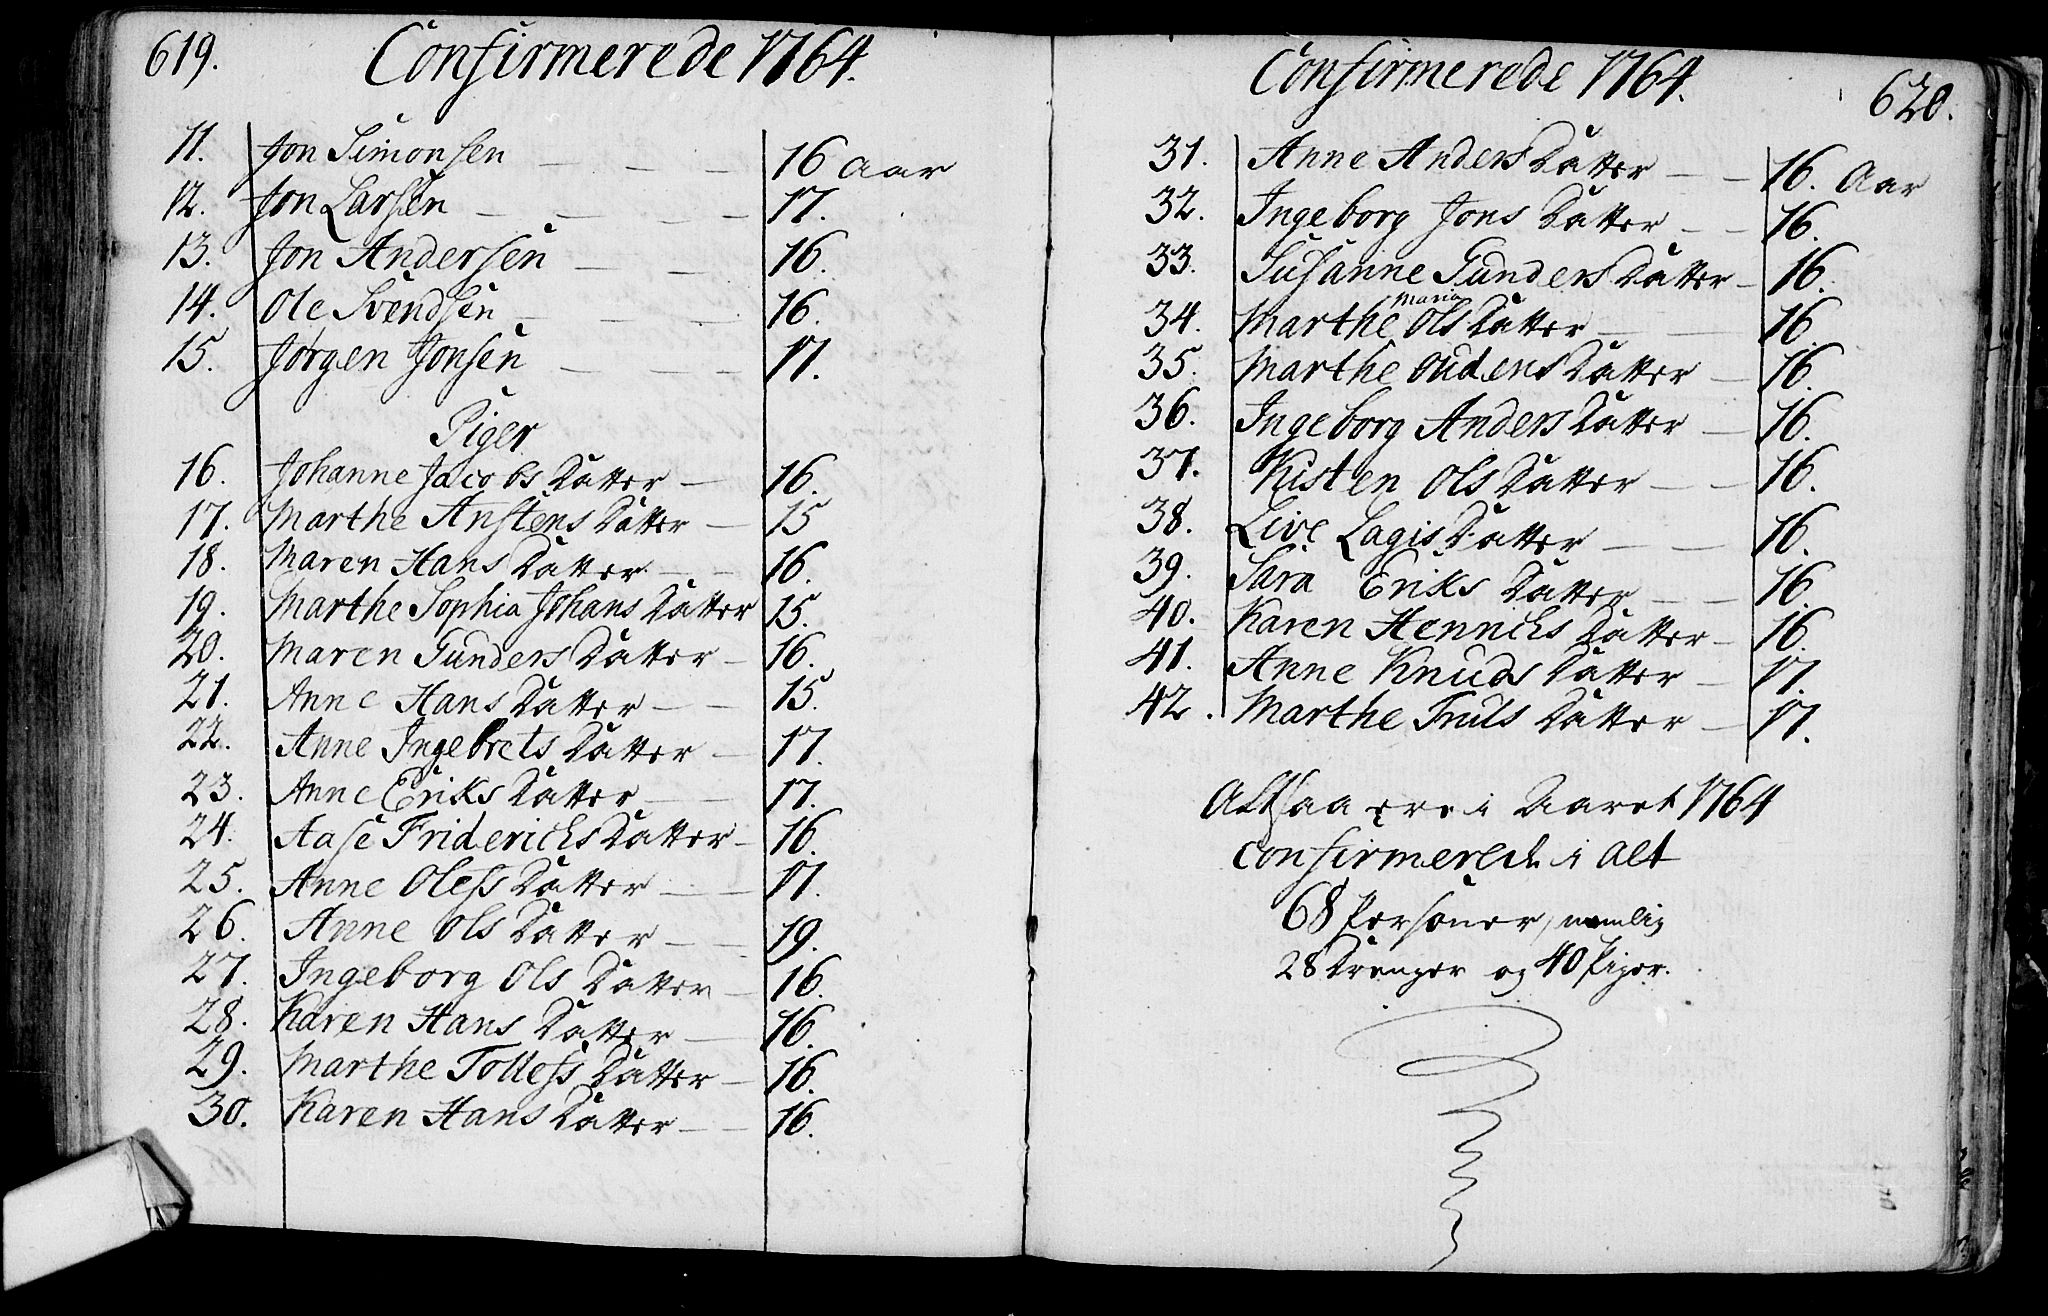 619.
Confirmerede 1764.
11. Jon Simonsen — — — 16 Aar
12. Jon Larsen — — — — 17.
13. Jon Andersen — — 16.
14. Ole Svendsen — — — 16.
15. Jørgen Jonsen — — — 17.
Piger
16. Johanne Jacobs Datter — 16.
17. Marthe Anstens Datter — 15
18. Maren Hans Datter — — 16.
19. Marthe Sophia Johans Datter 15.
20. Maren Gunders Datter — 16.
21. Anne Hans Datter — — 15.
22. Anne Ingebrets Datter — 17.
23. Anne Eriks Datter — — 17.
24. Aase Friderichs Datter — 16.
25. Anne Oless Datter — — 17.
26. Anne Ols Datter — — 19.
27. Ingeborg Ols Datter — 16.
28. Karen Hans Datter — 16.
29. Marthe Tolless Datter — 16.
30. Karen Hans Datter — — 16.
Confirmerede 1764.
620.
31. Anne Anders Datter — — 16. Aar
32. Ingeborg Jons Datter — — 16.
33. Susanne Gunders Datter — 16.
34. Marthe Maria Ols Datter — — 16.
35. Marthe Oudens Datter — 16.
36. Ingeborg Anders Datter — 16.
37. Kisten Ols Datter — — 16.
38. Live Lagis Datter — — 16.
39. Sara Eriks Datter — — 16.
40. Karen Henrichs Datter — 16.
41. Anne Knuds Datter — 17.
42. Marthe Truls Datter — 17.
Altsaa ere i Aaret 1764
confirmerede i alt
68 Personer, nemlig
28 Drenger og 40 Piger.